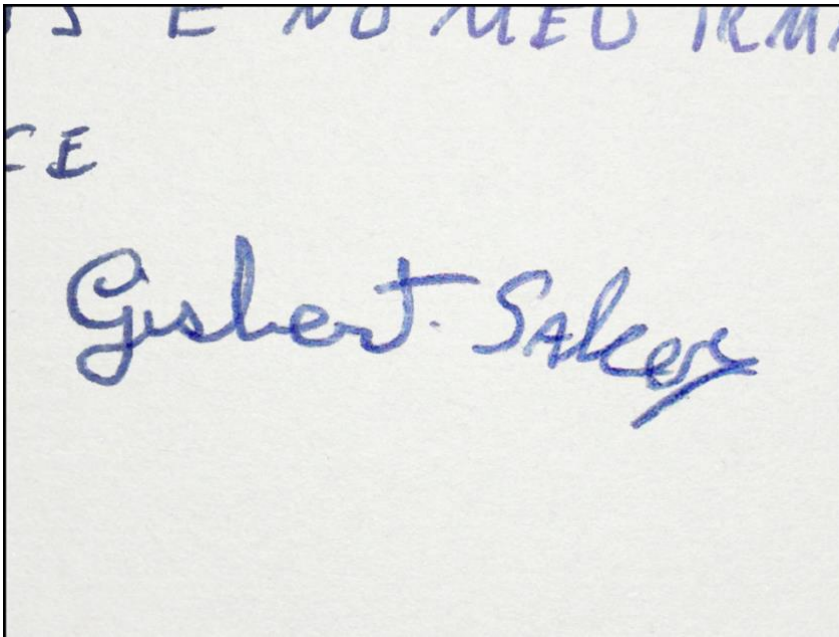 E NO MEU IRM
CE
Gisbert Sakoy